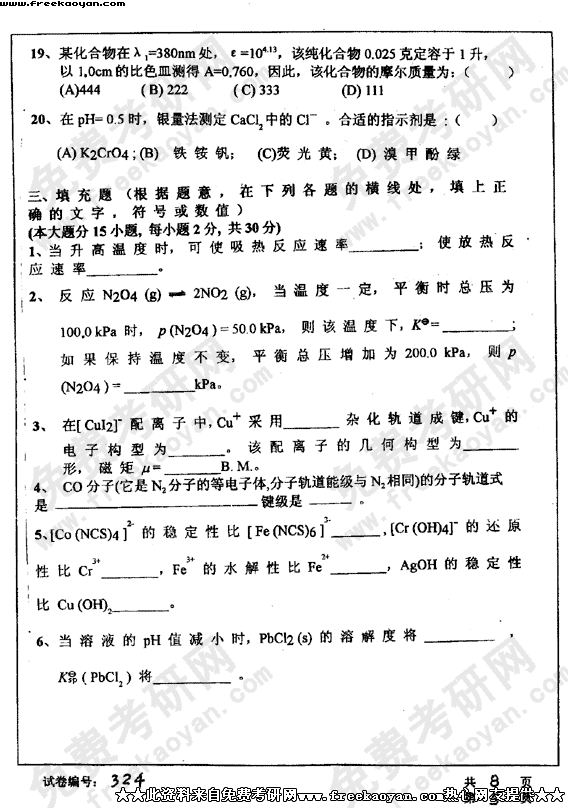 www.freekaoyan.com
19、某化合物在λ₁=380nm处，ε=10⁴·¹³，该纯化合物0.025克定容于1升，
以1.0cm的比色皿测得A=0.760，因此，该化合物的摩尔质量为：（ ）
(A)444 (B) 222 (C) 333 (D) 111
20、在pH= 0.5时，银量法测定CaCl₂中的Cl⁻。合适的指示剂是：（ ）
(A) K2CrO4；(B) 铁铵钒； (C)荧光黄； (D) 溴甲酚绿
三、填充题（根据题意，在下列各题的横线处，填上正
确的文字，符号或数值）
(本大题分15小题，每小题2分，共30分)
1、当升高温度时，可使吸热反应速率________；使放热反
应速率________。
2、反应N2O4 (g) ⇌ 2NO2 (g)，当温度一定，平衡时总压为
100.0 kPa时，p(N2O4) = 50.0 kPa，则该温度下，K⊖=________；
如果保持温度不变，平衡总压增加为200.0 kPa，则p
(N2O4) = ________kPa。
3、在[CuI2]⁻配离子中，Cu⁺采用______杂化轨道成键，Cu⁺的
电子构型为______。该配离子的几何构型为______
形，磁矩μ=________B.M.。
4、CO分子(它是N₂分子的等电子体，分子轨道能级与N₂相同)的分子轨道式
是________________________键级是_____。
5、[Co(NCS)4]²⁻的稳定性比[Fe(NCS)6]³⁻______，[Cr(OH)4]⁻的还原
性比Cr³⁺________，Fe³⁺的水解性比Fe²⁺________，AgOH的稳定性
比Cu(OH)₂_______。
6、当溶液的pH值减小时，PbCl2 (s)的溶解度将________，
K⊖sp(PbCl₂)将_________。
试卷编号：324
共 8 页
第 3 页
★★此资料来自免费考研网www.freekaoyan.com热心网友提供★★
免费考研网
www.freekaoyan.com